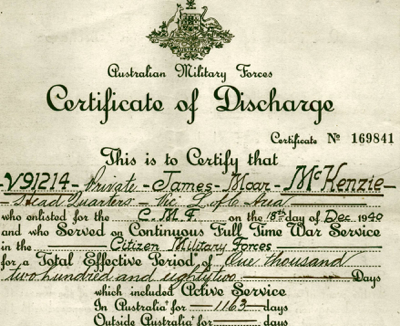 Australian Military Forces
Certificate of Discharge
Certificate No 169841
This is to Certify that
V91214 - Private - James - Moar - McKenzie -
Head Quarters - Vic L of C Area
who enlisted for the C.M.F. on the 18th day of Dec 1940
and who Served on Continuous Full Time War Service
in the Citizen Military Forces
for a Total Effective Period of One thousand
two hundred and eightytwo Days
which included Active Service
In Australia for 1163 days
Outside Australia for days